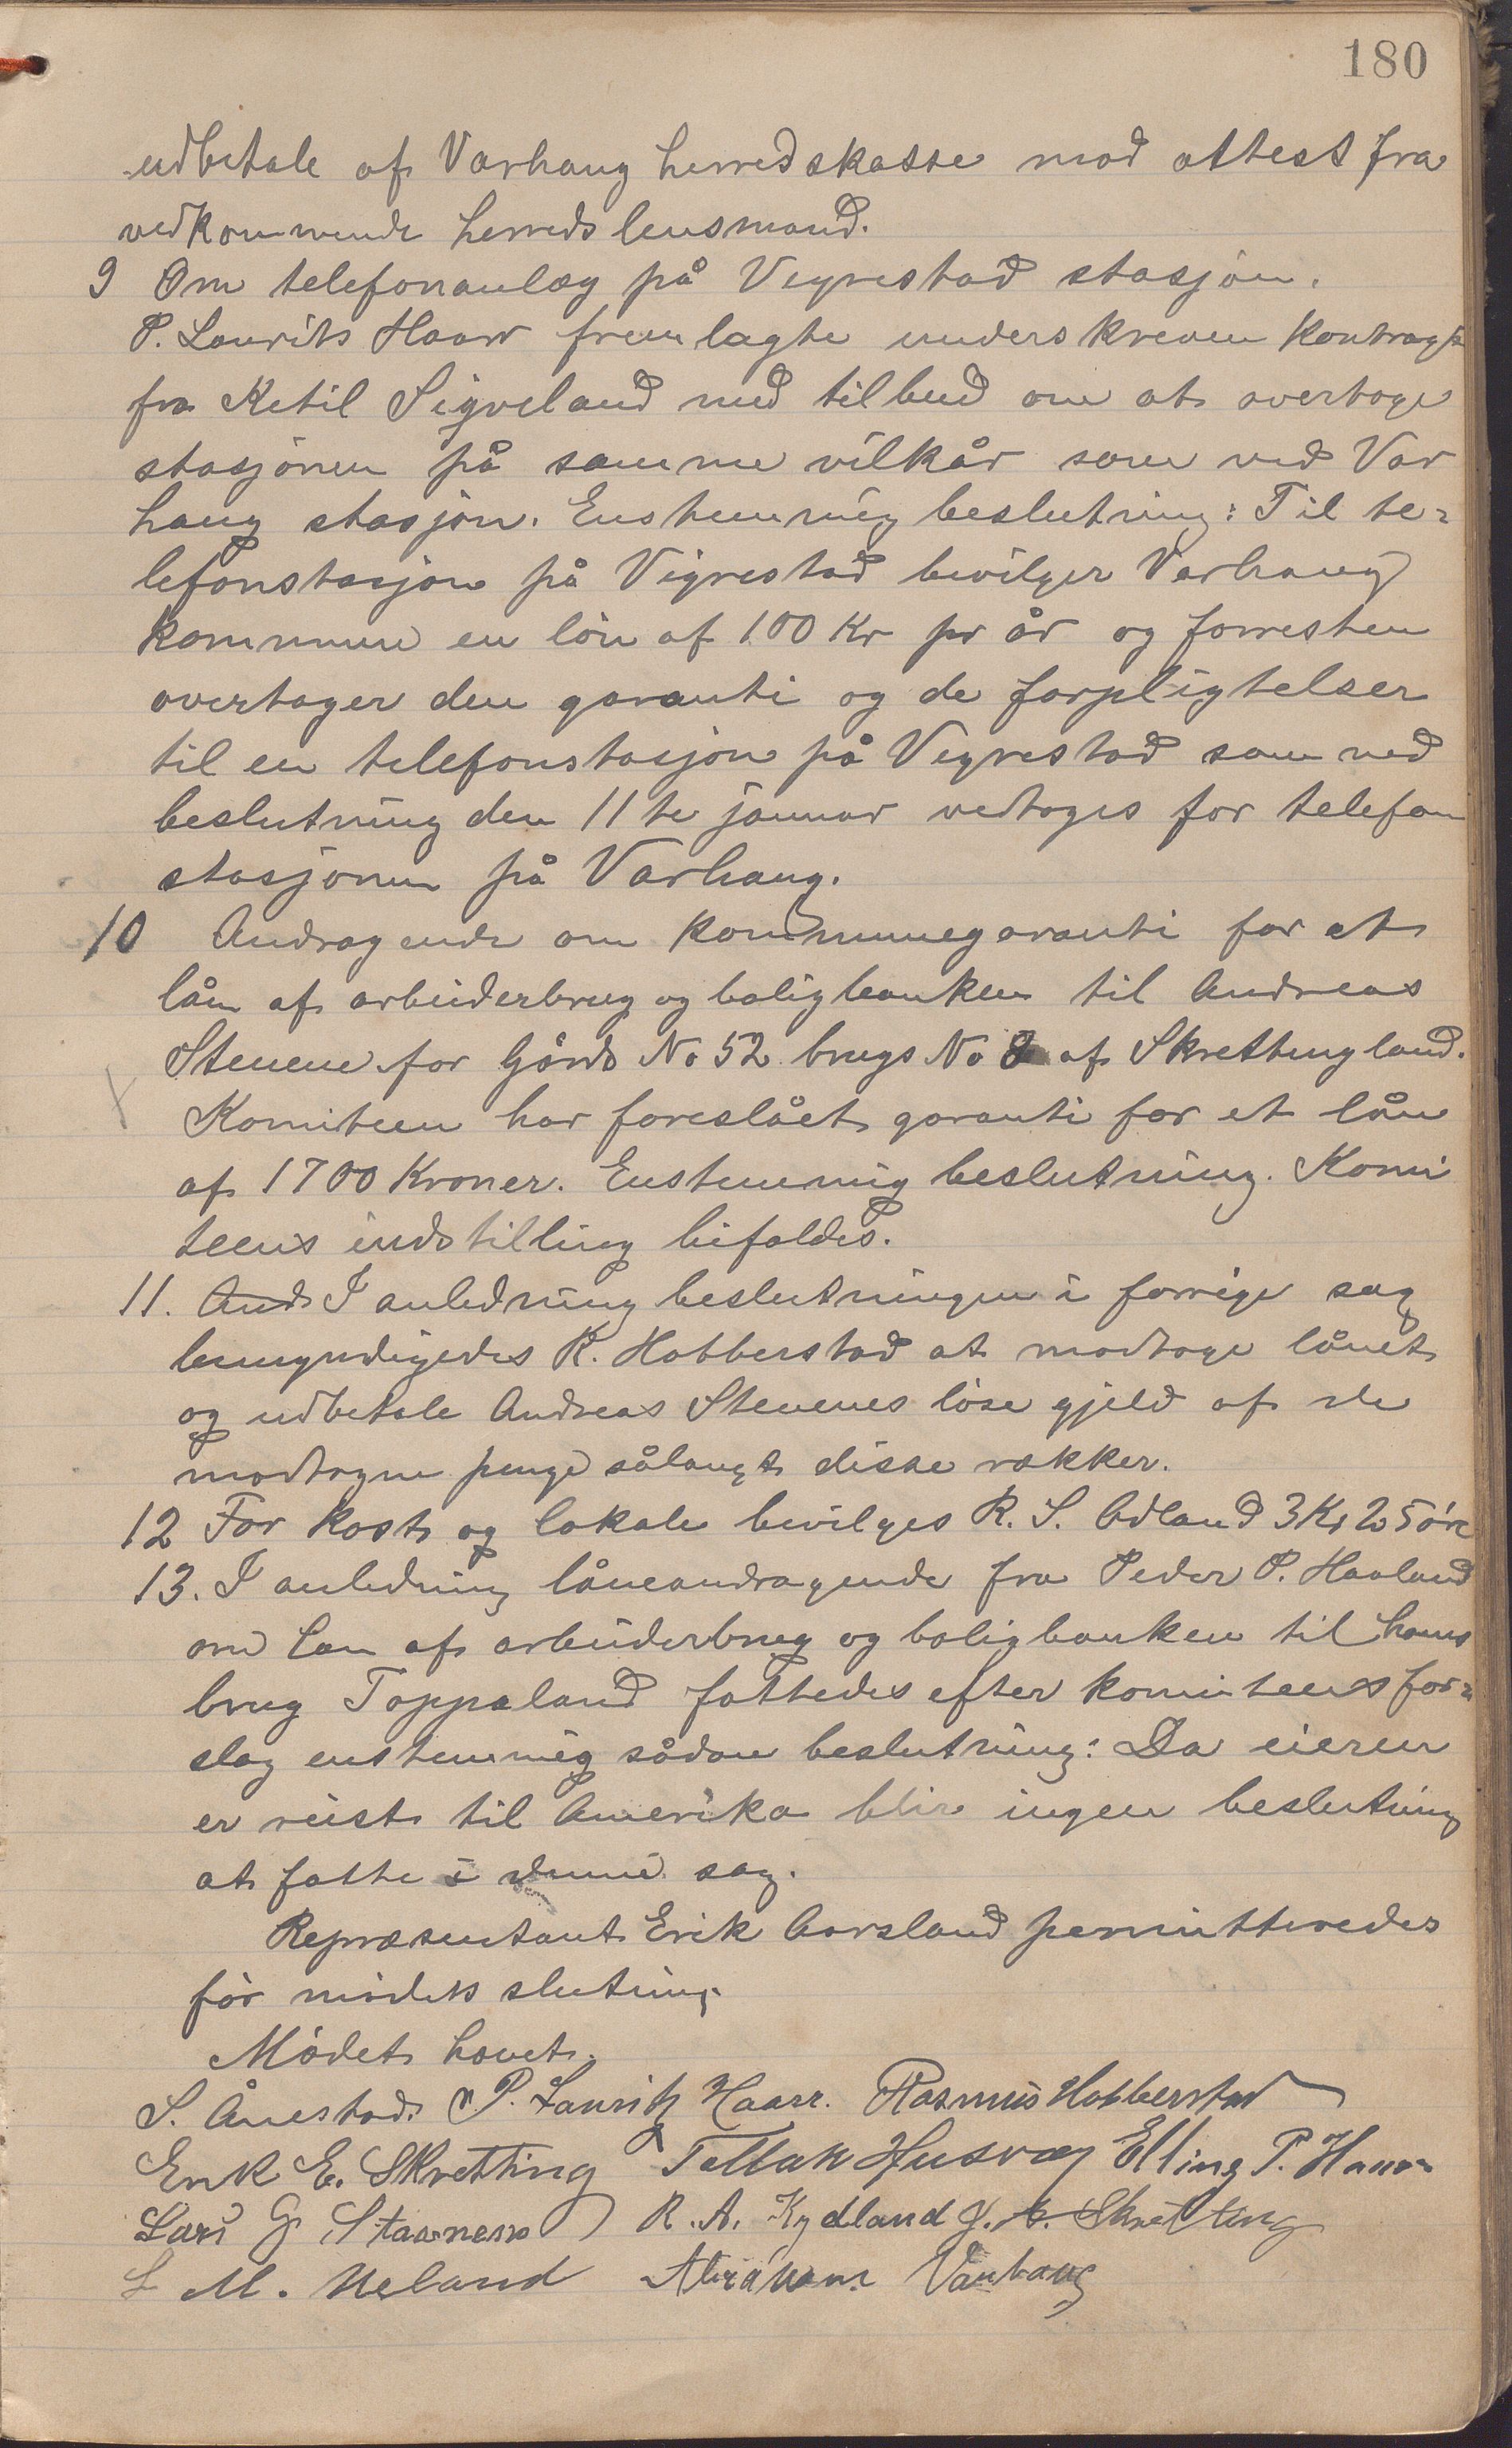 180
udbetale af Varhaug herredskasse mod attest fra
vedkommende herreds lensmand.
9 Om telefonanlæg på Vigrestad stasjon.
P. Laurits Haarr fremlagte underskreven kontragt
fra Ketil Sigveland med tilbud om at overtage
stasjonen på samme vilkår som ved Var
haug stasjon. Enstemmig beslutning: Til te=
lefonstasjon på Vigrestad bevilger Varhaug
kommune en løn af 100 Kr pr år og forresten
overtager den garanti og de forpligtelser
til en telefonstasjon på Vigrestad som ved
beslutning den 11te januar vedtoges for telefon
stasjonen på Varhaug.
10 Andragende om kommunegaranti for et
lån af arbeiderbrug og boligbanken til Andreas
Stenene for Gårds No 52 brugs No 8 af Skrettingland.
Komiteen har foreslået garanti for et lån
af 1700 Kroner. Enstemmig beslutning. Komi
teens indstilling bifaldes.
11. And I anledning beslutningen i forrige sag
bemyndigedes R. Hobberstad at modtage lånet
og udbetale Andreas Stenenes løse gjeld af de
modtagne penge sålangt disse rækker.
12 For kost og lokale bevilges R. S. Ådland 3 Kr 25 øre
13. I anledning låneandragende fra Peder P. Haaland
om lån af arbeiderbrug og boligbanken til hans
brug Toppaland fattedes efter komiteens for=
slag enstemmig sådan beslutning: Da eieren
er reist til Amerika blir ingen beslutning
at fatte i denne sag.
Repræsentant Erik Aarsland permitteredes
før mødets slutning.
Mødet hævet.
S. Ånestad. P. Lauritz Haarr. Rasmus Hobberstad
Erik E. Skretting Tollak Husvæg Elling P. Haarr
Lars G Stavnem R. A. Kydland G. A. Skretting
L M. Ueland Abraham Varhaug